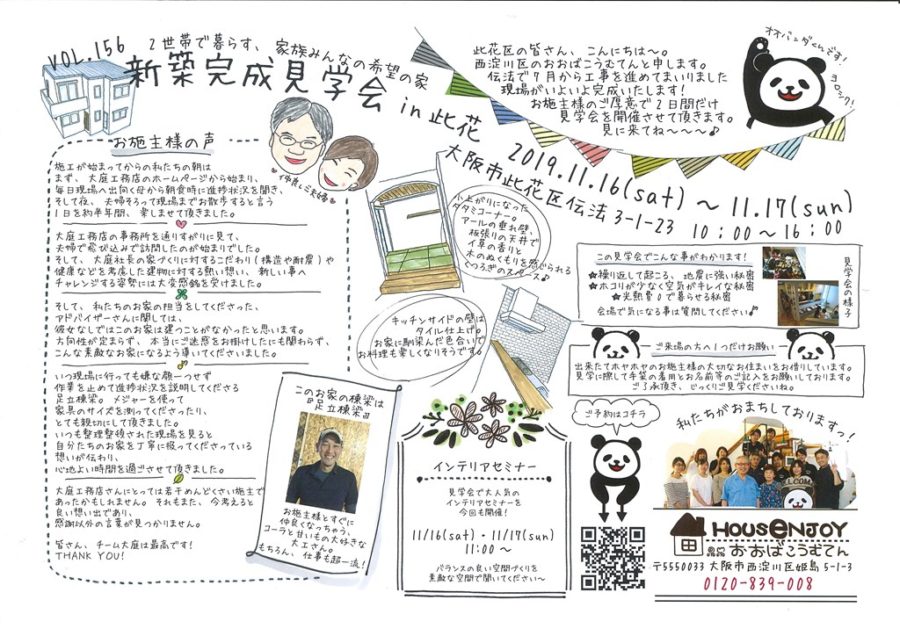 VOL.156
2世帯で暮らす、家族みんなの希望の家
新築完成見学会 in 此花
此花区の皆さん、こんにちは〜。
西淀川区のおおばこうむてんと申します。
伝法で7月から工事を進めてまいりました
現場がいよいよ完成いたします!
お施主様のご厚意で2日間だけ
見学会を開催させて頂きます。
見に来てね〜〜〜♪
オオパンダくんです!
ヨロシク!
2019.11.16(sat)〜11.17(sun)
大阪市此花区伝法3-1-23 10:00〜16:00
お施主様の声
施工が始まってからの私たちの朝は
まず、大庭工務店のホームページから始まり、
毎日現場へ出向く母から朝食時に進捗状況を聞き、
そして夜、夫婦そろって現場までお散歩すると言う
1日を約半年間、楽しませて頂きました。
大庭工務店の事務所を通りすがりに見て、
夫婦で飛び込みで訪問したのが始まりでした。
そして、大庭社長の家づくりに対するこだわり(構造や耐震)や
健康などを考慮した建物に対する熱い想い、新しい事へ
チャレンジする姿勢には大変感銘を受けました。
そして、私たちのお家の担当をしてくださった、
アドバイザーさんに関しては、
彼女なしではこのお家は建つことがなかったと思います。
方向性が定まらず、本当にご迷惑をお掛けしたにも関わらず、
こんな素敵なお家になるよう導いてくださいました。
いつ現場に行っても嫌な顔一つせず
作業を止めて進捗状況を説明してくださる
足立棟梁。メジャーを使って
家具のサイズを測ってくださったり、
とても親切にして頂きました。
いつも整理整頓された現場を見ると
自分たちのお家を丁寧に扱ってくださっている
想いが伝わり、
心地よい時間を過ごさせて頂きました。
大庭工務店さんにとっては若干めんどくさい施主で
あったかもしれません。それもまた、今考えると
良い想い出であり、
感謝以外の言葉が見つかりません。
皆さん、チーム大庭は最高です!
THANK YOU!
仲良しご夫婦
小上がりになった
タタミコーナー。
アールの垂れ壁、
板張りの天井で
イ草の香りと
木のぬくもりを感じられる
くつろぎのスペース♪
キッチンサイドの壁は
タイル仕上げ。
お家に馴染んだ色合いで
お料理も楽しくなりそうです。
このお家の棟梁は
『足立棟梁』
お施主様とすぐに
仲良くなっちゃう、
コーラと甘いもの大好きな
大工さん。
もちろん、仕事も超一流!
インテリアセミナー
見学会で大人気の
インテリアセミナーを
今回も開催!
11/16(sat)・11/17(sun)
11:00〜
バランスの良い空間づくりを
素敵な空間で聞いてください〜
この見学会でこんな事がわかります!
★繰り返して起こる、地震に強い秘密
★ホコリが少なく空気がキレイな秘密
★光熱費0で暮らせる秘密
会場で気になる事は質問してください♪
見学会の様子
ご来場の方へ1つだけお願い
出来たてホヤホヤのお施主様の大切なお住まいをお借りしています。
見学に際して手袋の着用とお名前等のご記入をお願いしております。
ご了承頂き、じっくりご見学くださいね。
ご予約はコチラ
私たちがおまちしておりますっ!
WELCOME
HOUSENJOY
おおばこうむてん
〒5550033 大阪市西淀川区姫島5-1-3
0120-839-008